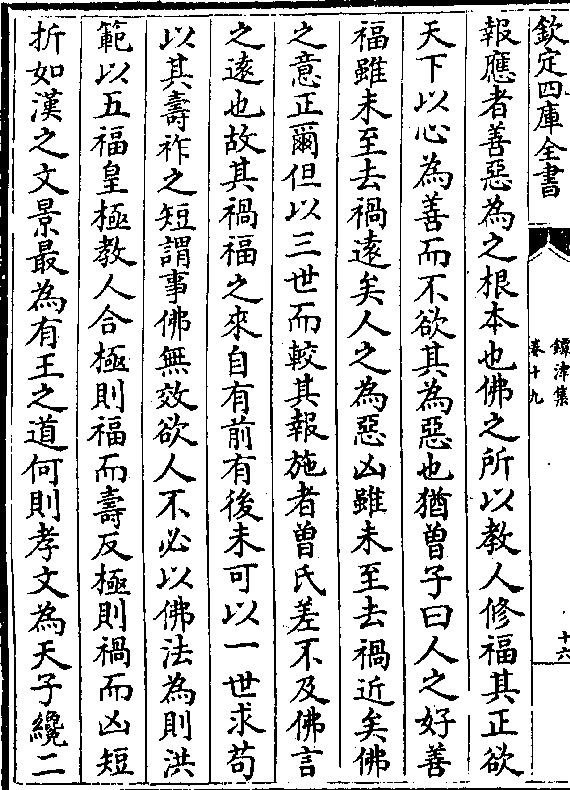 欽定四庫全書
鐔津集
卷十九
十六
報應者善惡為之根本也佛之所以教人修福其正欲
天下以心為善而不欲其為惡也猶曾子曰人之好善
福雖未至去禍遠矣人之為惡凶雖未至去禍近矣佛
之意正爾但以三世而較其報施者曾氏差不及佛言
之遠也故其禍福之來自有前有後未可以一世求苟
以其壽祚之短謂事佛無效欲人不必以佛法為則洪
範以五福皇極教人合極則福而壽反極則禍而凶短
折如漢之文景最為有王之道何則孝文為天子纔二